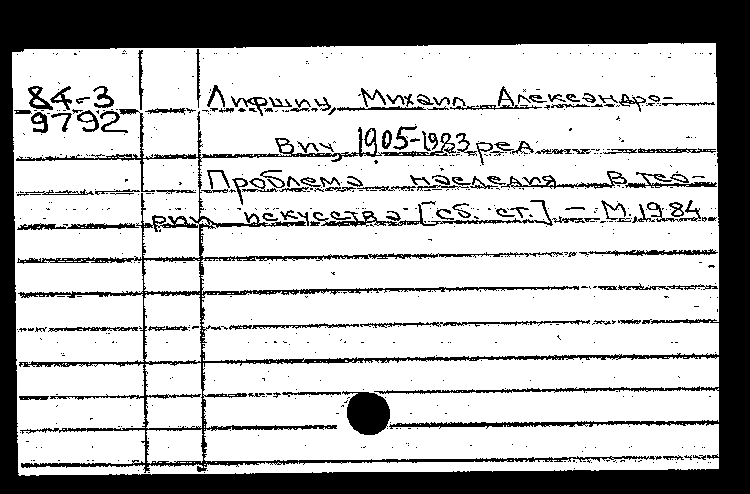 84-3
9792
Лифшиц, Михаил Александро-
вич, 1905-1983 ред
Проблема наследия в тео-
рии искусства [сб. ст.] – М, 1984